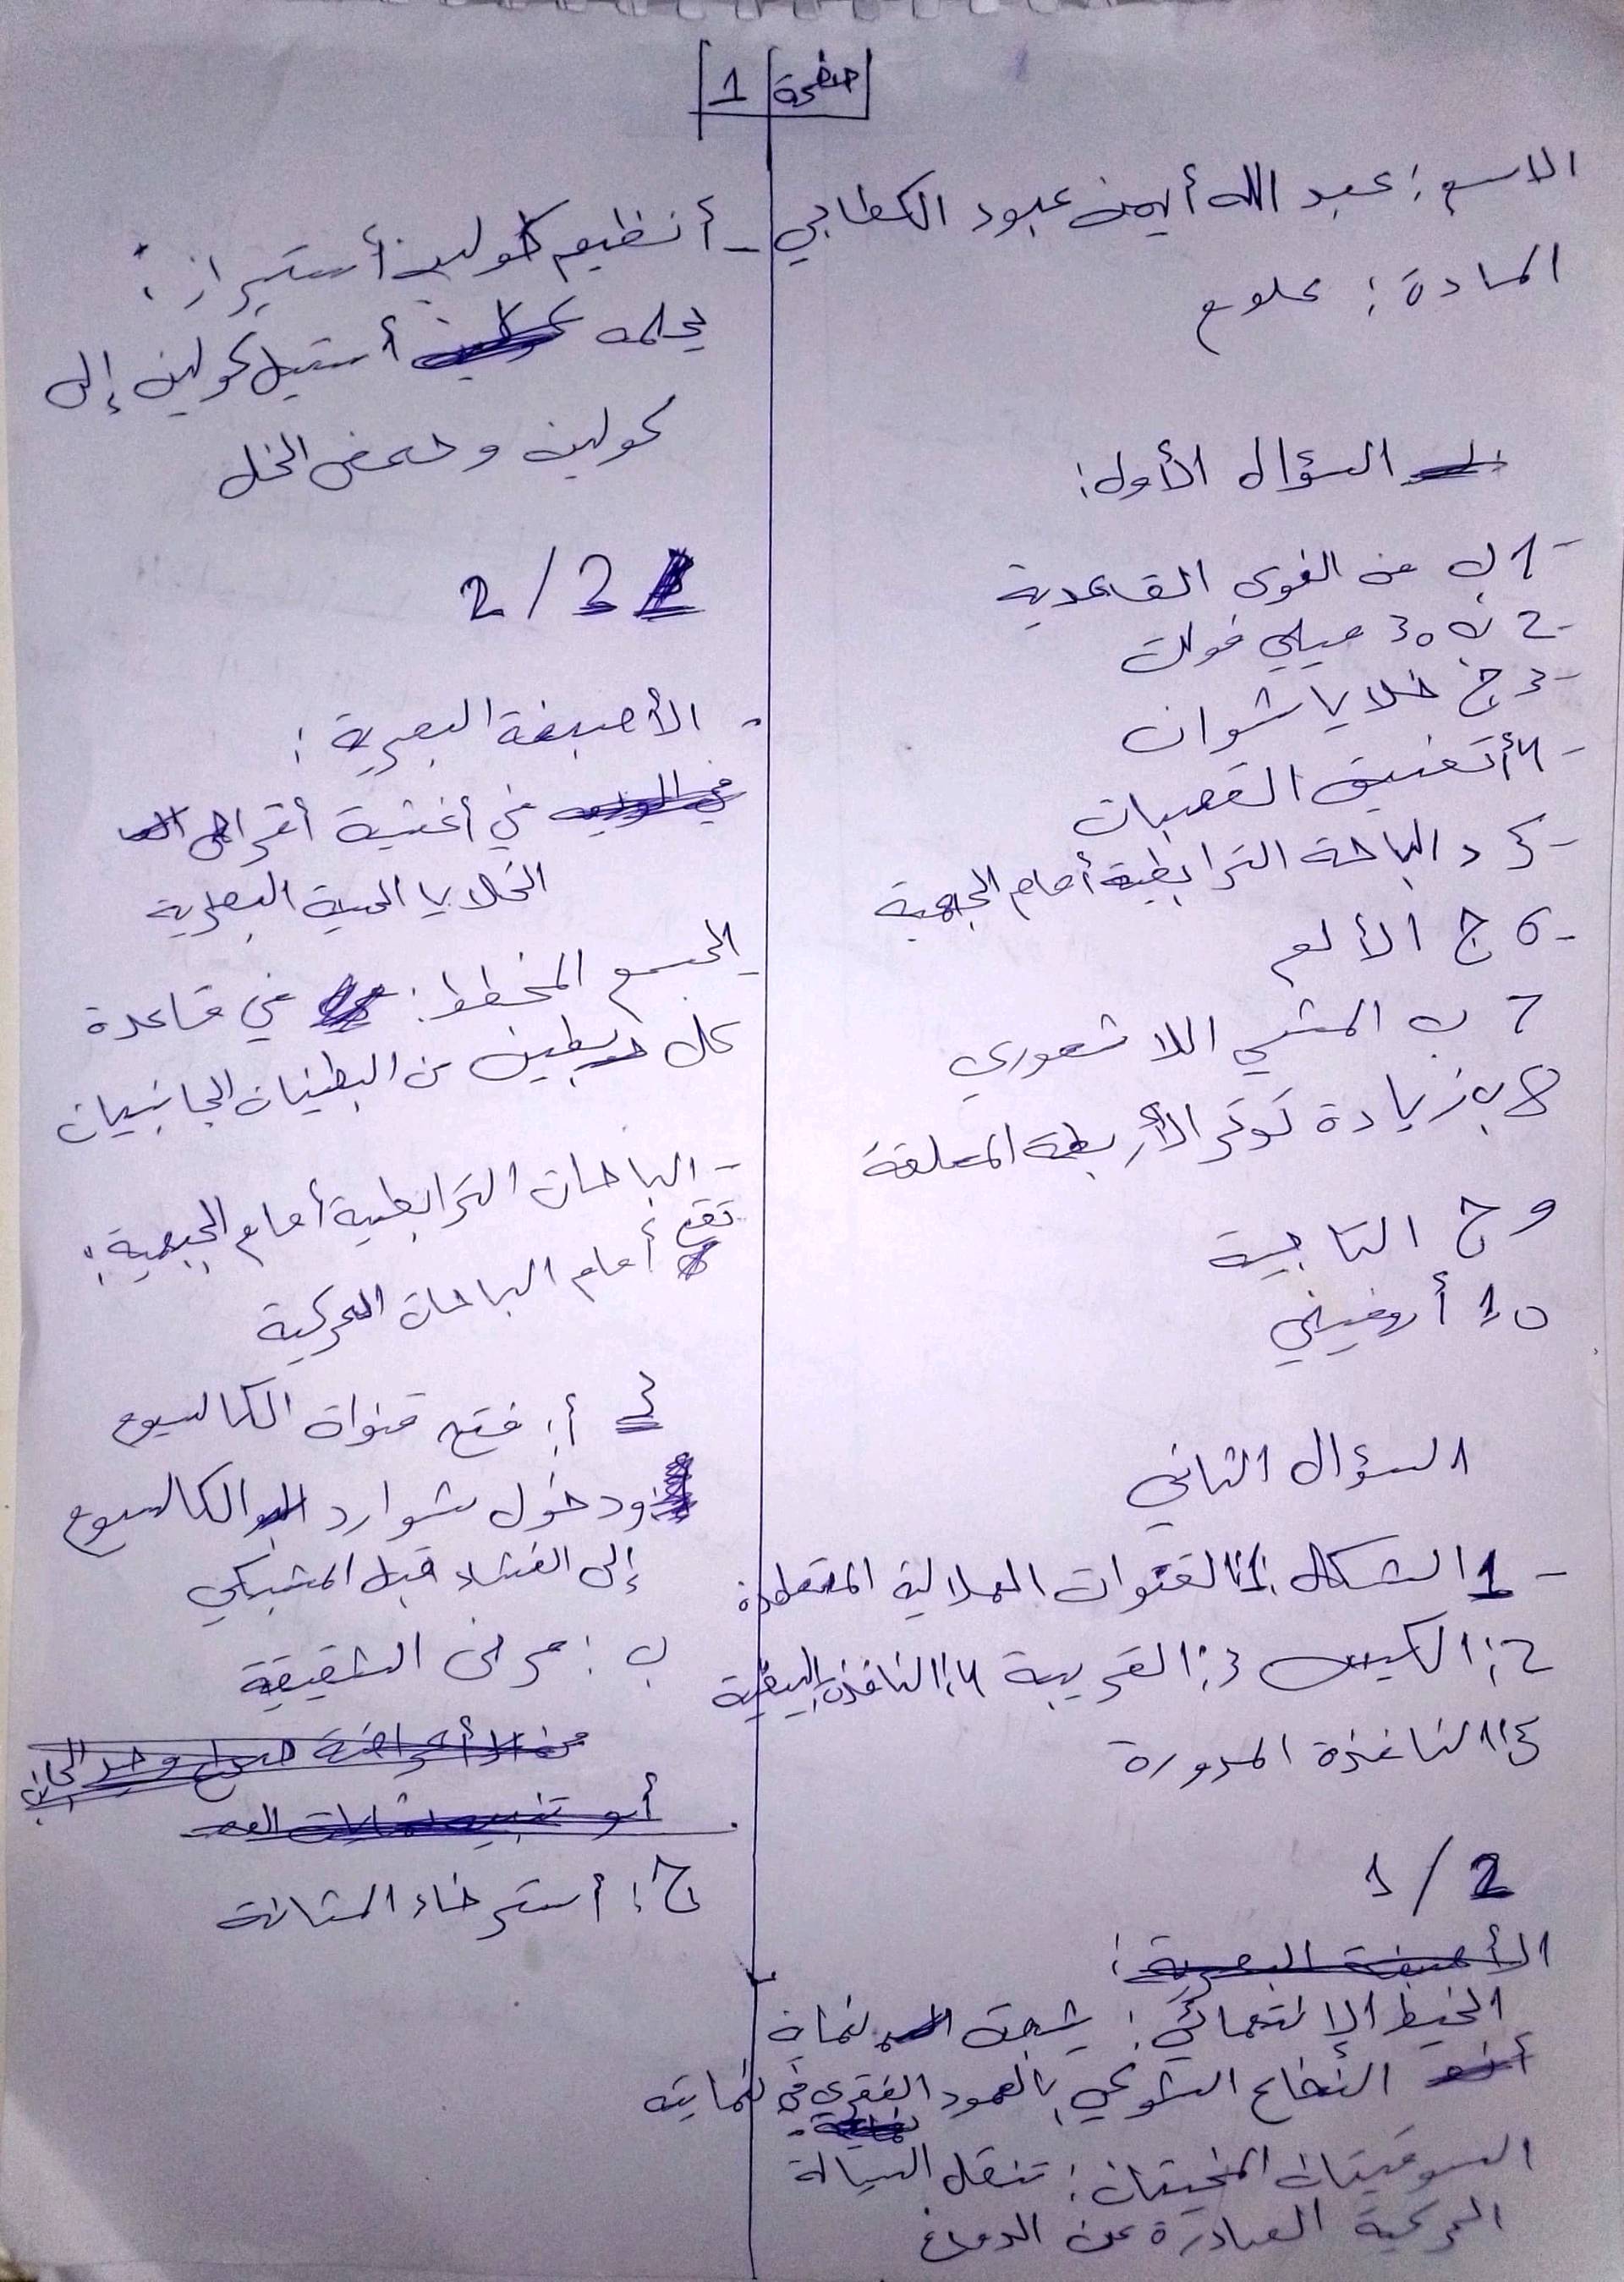 صفحة 1
الاسم: عبد الله أيمن عبود الكطابي
المادة: علوم
السؤال الأول:
- 1 ب من القوى القاعدية
- 2 ب 30 ميلي فولت
- 3 ج خلايا شوان
- 4 أ تضيق القصبات
- 5 د الباحة الترابطية أمام الجبهية
- 6 ج الألم
7 ب المشي اللاشعوري
8 ب زيادة توتر الأربطة المعلقة
9 ج التاجية
10 أ
السؤال الثاني
- 1 الشكل: 1: القنوات الهلالية المتعامدة
2: الكييس 3: القريبة 4: النافذة البيضية
5: النافذة المدورة
1 / 2
الأصبغة البصرية:
الخيط الانتهائي: يثبت نهاية
النخاع الشوكي بالعمود الفقري في نهايته
السويقيتان المخيتان: تنقل السيالة
الحركية الصادرة عن الدماغ
- أنظيم كولين أستيراز:
يحلمه أستيل كولين إلى
كولين وحمض الخل
2 / 2
- الأصبغة البصرية:
في أغشية أقراص
الخلايا الحسية البصرية
- الجسم المخطط: في قاعدة
كل بطين من البطينان الجانبيان
- الباحات الترابطية أمام الجبهية:
تقع أمام الباحات الحركية
3 أ: فتح قنوات الكالسيوم
ودخول شوارد الكالسيوم
إلى الغشاء قبل المشبكي
ب: مرض الشقيقة
ج: أسترخاء المثانة